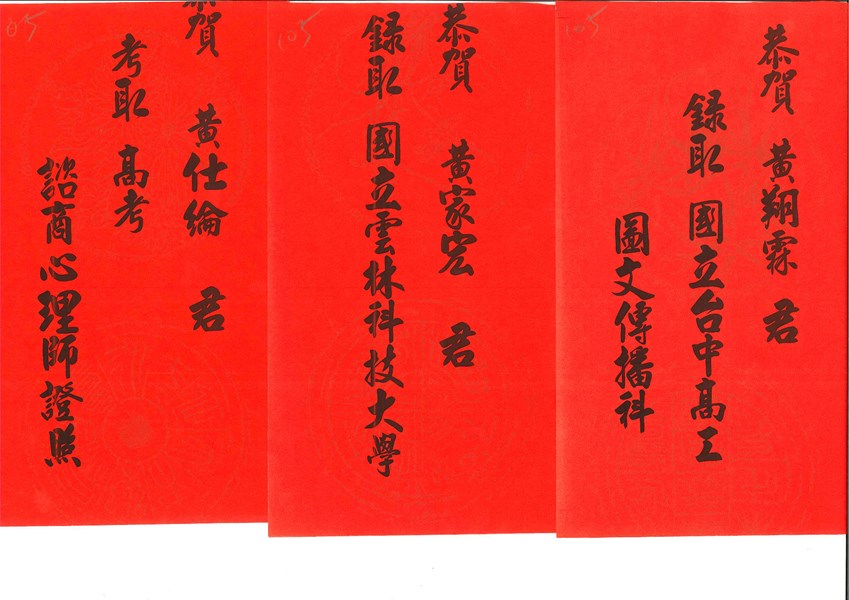 105
恭賀 黃翔霖 君
錄取 國立台中高工
圖文傳播科
105
恭賀 黃家宏 君
錄取 國立雲林科技大學
05
恭賀 黃仕綸 君
考取 高考
諮商心理師證照